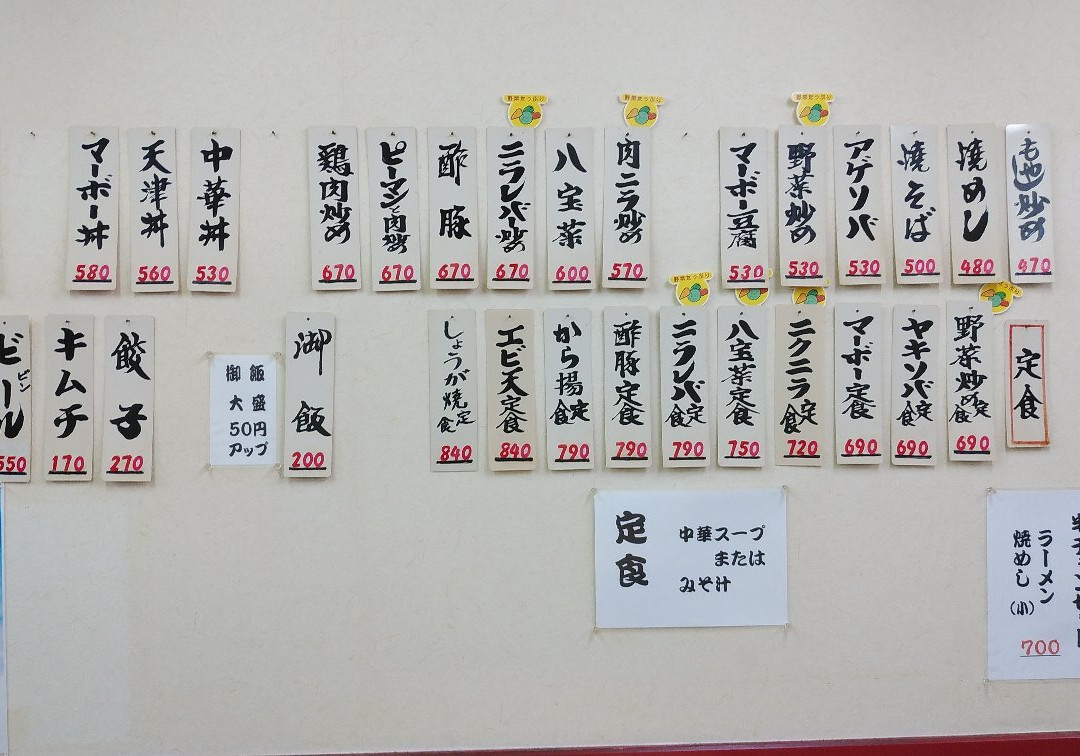 もやし炒め
470
焼めし
480
焼そば
500
アゲソバ
530
野菜たっぷり
野菜炒め
530
マーボー豆腐
530
野菜たっぷり
肉ニラ炒め
570
八宝菜
600
野菜たっぷり
ニラレバー炒め
670
酢豚
670
ピーマンと肉炒め
670
鶏肉炒め
670
中華丼
530
天津丼
560
マーボー丼
580
定食
野菜炒め定食
690
ヤキソバ定食
690
マーボー定食
690
ニクニラ定食
720
八宝菜定食
750
野菜たっぷり
ニラレバ定食
790
酢豚定食
790
から揚定食
790
エビ天定食
840
しょうが焼定食
840
御飯
200
御飯
大盛
50円
アップ
餃子
270
キムチ
170
ビール
ビン
550
定食
中華スープ
または
みそ汁
ラーメン
焼めし(小)
700